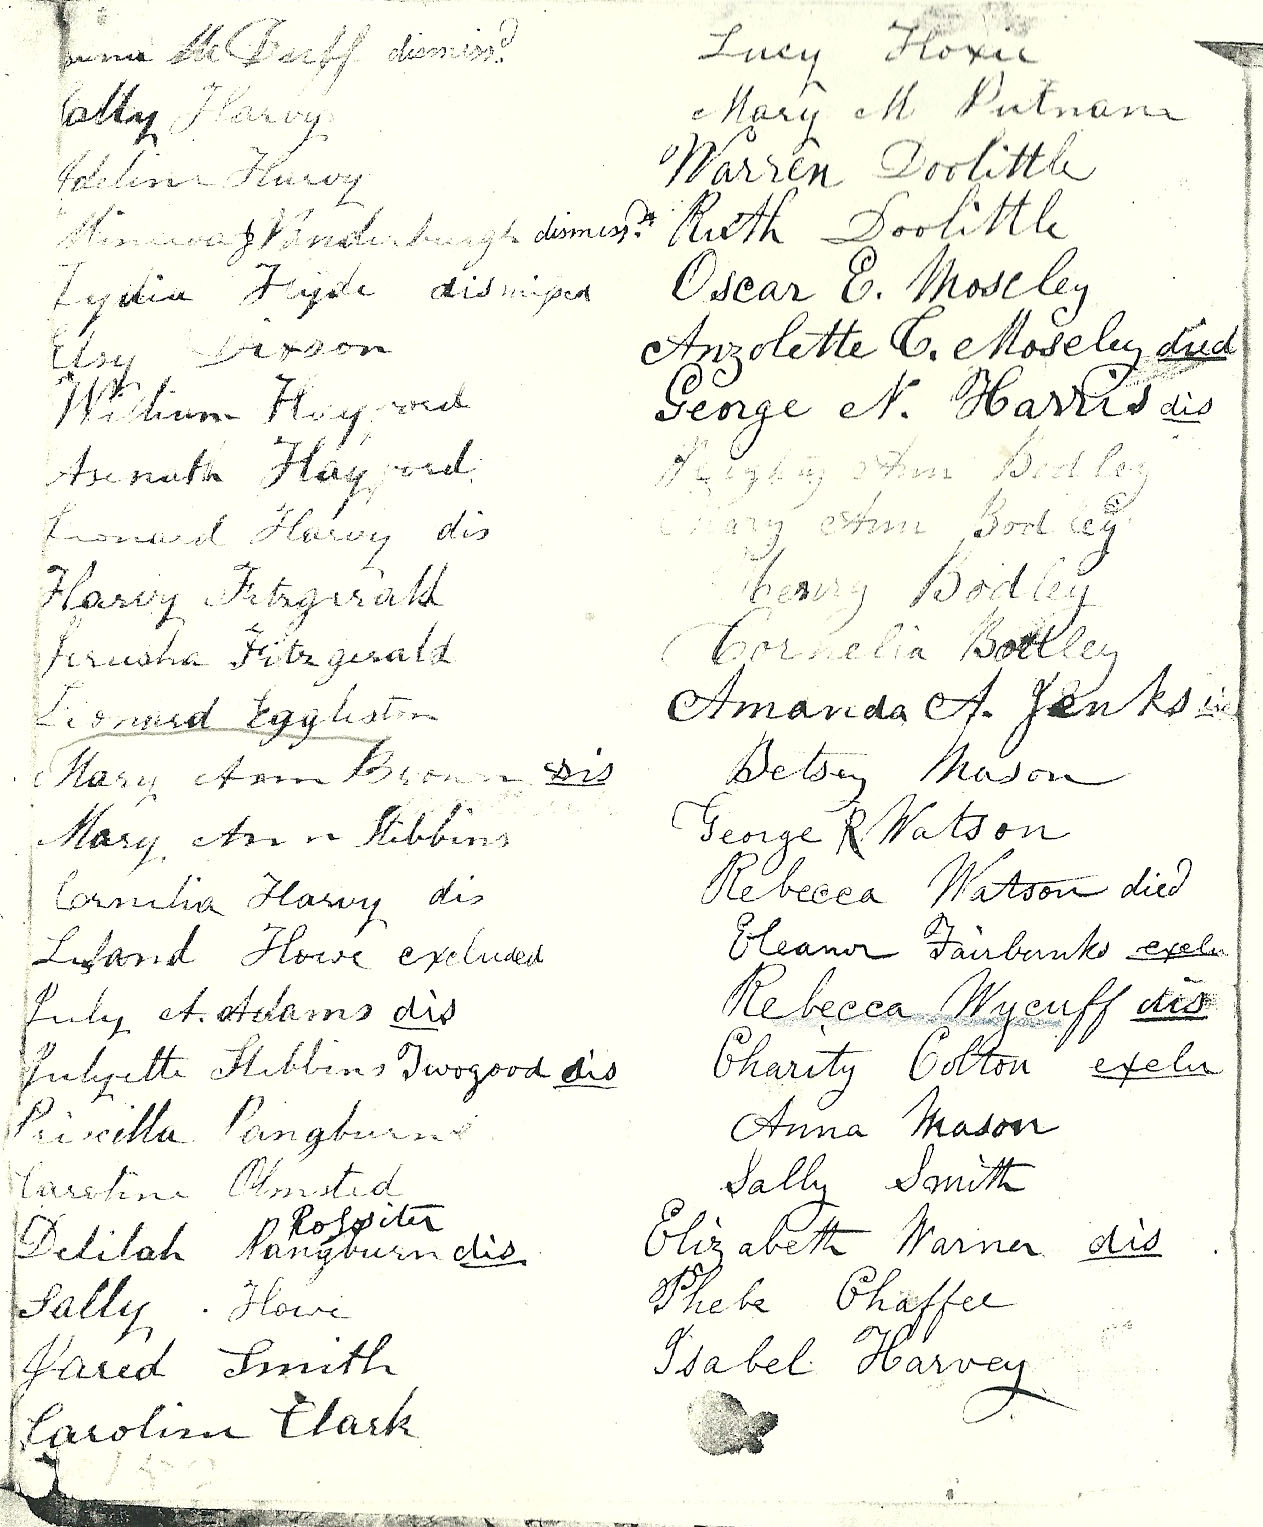 Mc Duff dismissd
Sally Harvy
Adeline Harvy
Vanderburgh dismissd
Lydia Hyde dismissed
Elsy Dixson
William Hayford
Asenath Hayford
Leonard Harvy dis
Harvy Fitzgerald
Jerusha Fitzgerald
Leonard Eggleston
Mary Ann Brown dis
Mary Ann Stibbins
Cornelia Harvy dis
Leland Howe excluded
July A. Adams dis
Julyette Stibbins Twogood dis
Priscilla Pangburn
Caroline Olmsted
Rossiter
Delilah Pangburn dis
Sally Howe
Jared Smith
Caroline Clark
Lucy Hoxie
Mary M Putnam
Warren Doolittle
Ruth Doolittle
Oscar E. Moseley
Anzolette C. Moseley died
George N. Harris dis
Ann Bodley
Mary Ann Bodley
Henry Bodley
Cornelia Bodley
Amanda A. Jenks
Betsey Mason
George R Watson
Rebecca Watson died
Eleanor Fairbanks exclu
Rebecca Wycuff dis
Charity Colton exclu
Anna Mason
Sally Smith
Elizabeth Warner dis
Phebe Chaffee
Isabel Harvey